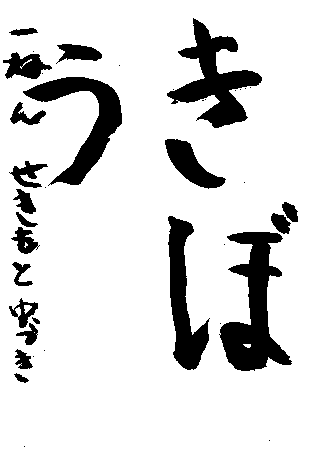 きぼ
う
一ねん せきもと みづき